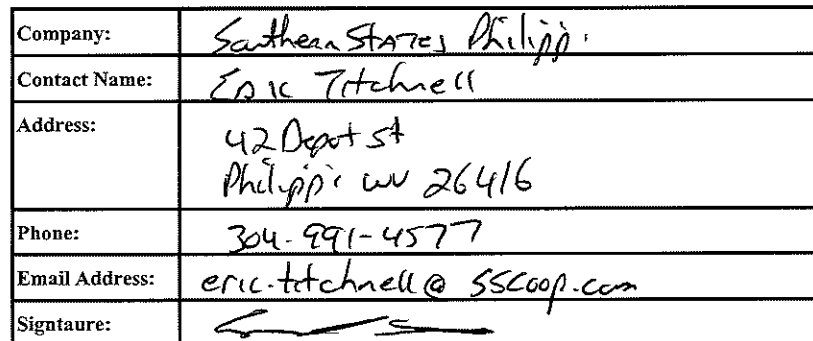 Company: Southern States Philippi
Contact Name: Eric Titchnell
Address: 42 Depot st
Philippi WV 26416
Phone: 304-991-4577
Email Address: eric.titchnell@sscoop.com
Signtaure: